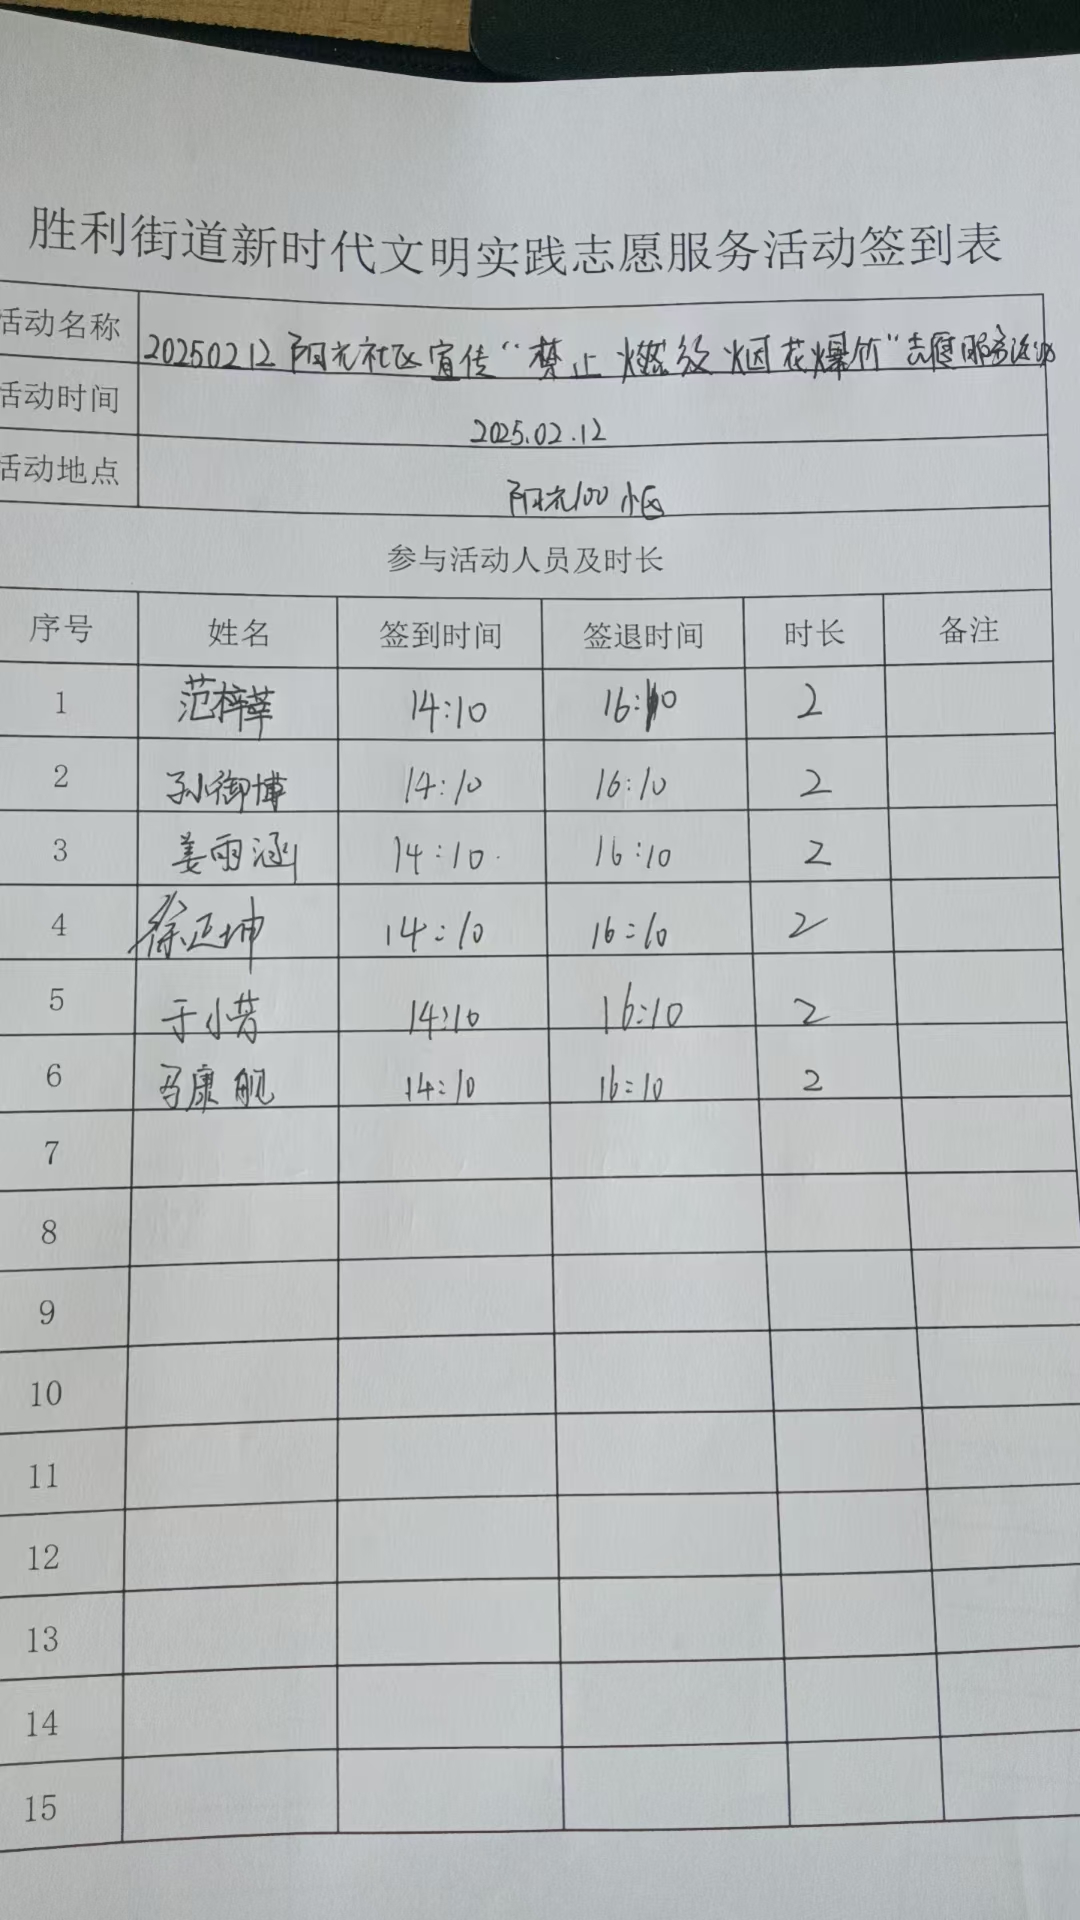 胜利街道新时代文明实践志愿服务活动签到表
活动名称 20250212阳光社区宣传“禁止燃放烟花爆竹”志愿服务活动
活动时间 2025.02.12
活动地点 阳光100小区
参与活动人员及时长
序号 姓名 签到时间 签退时间 时长 备注
1 范梓莘 14:10 16:10 2
2 孙御博 14:10 16:10 2
3 姜雨涵 14:10 16:10 2
4 徐正坤 14:10 16:10 2
5 于小芮 14:10 16:10 2
6 马康舰 14:10 16:10 2
7
8
9
10
11
12
13
14
15